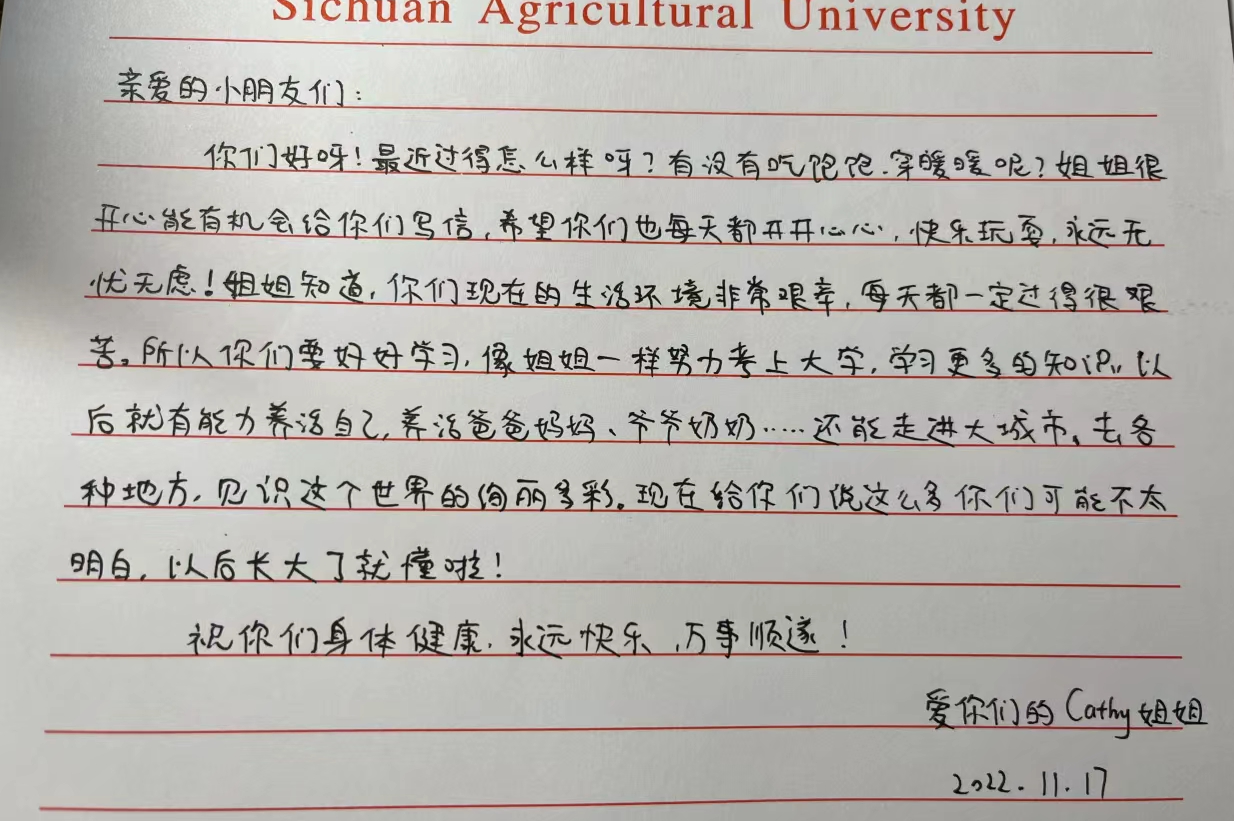 Sichuan Agricultural University
亲爱的小朋友们：
你们好呀！最近过得怎么样呀？有没有吃饱饱、穿暖暖呢？姐姐很
开心能有机会给你们写信，希望你们也每天都开开心心，快乐玩耍，永远无
忧无虑！姐姐知道，你们现在的生活环境非常艰辛，每天都一定过得很艰
苦。所以你们要好好学习，像姐姐一样努力考上大学，学习更多的知识，以
后就有能力养活自己，养活爸爸妈妈、爷爷奶奶……还能走进大城市，去各
种地方，见识这个世界的绚丽多彩。现在给你们说这么多你们可能不太
明白，以后长大了就懂啦！
祝你们身体健康，永远快乐，万事顺遂！
爱你们的Cathy姐姐
2022.11.17